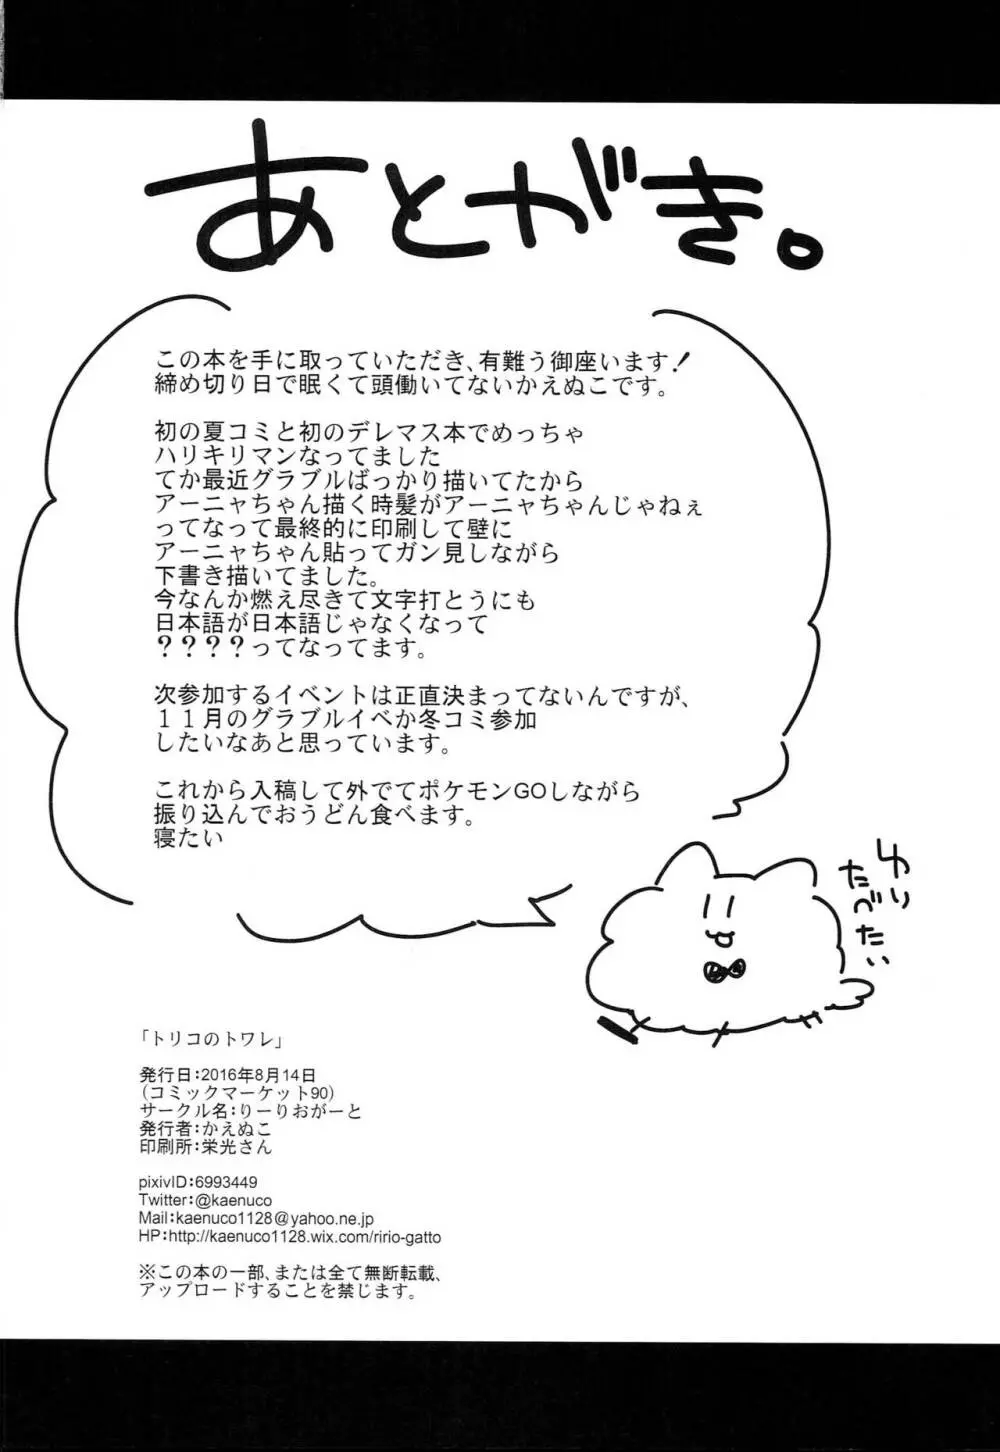 あとがき。
この本を手に取っていただき、有難う御座います！
締め切り日で眠くて頭働いてないかえぬこです。
初の夏コミと初のデレマス本でめっちゃ
ハリキリマンなってました
てか最近グラブルばっかり描いてたから
アーニャちゃん描く時髪がアーニャちゃんじゃねぇ
ってなって最終的に印刷して壁に
アーニャちゃん貼ってガン見しながら
下書き描いてました。
今なんか燃え尽きて文字打とうにも
日本語が日本語じゃなくなって
？？？？ってなってます。
次参加するイベントは正直決まってないんですが、
１１月のグラブルイベか冬コミ参加
したいなあと思っています。
これから入稿して外でてポケモンGOしながら
振り込んでおうどん食べます。
寝たい
ゆり
たべたい
「トリコのトワレ」
発行日：2016年8月14日
（コミックマーケット90）
サークル名：りーりおがーと
発行者：かえぬこ
印刷所：栄光さん
pixivID：6993449
Twitter：@kaenuco
Mail：kaenuco1128@yahoo.ne.jp
HP：http://kaenuco1128.wix.com/ririo-gatto
※この本の一部、または全て無断転載、
アップロードすることを禁じます。